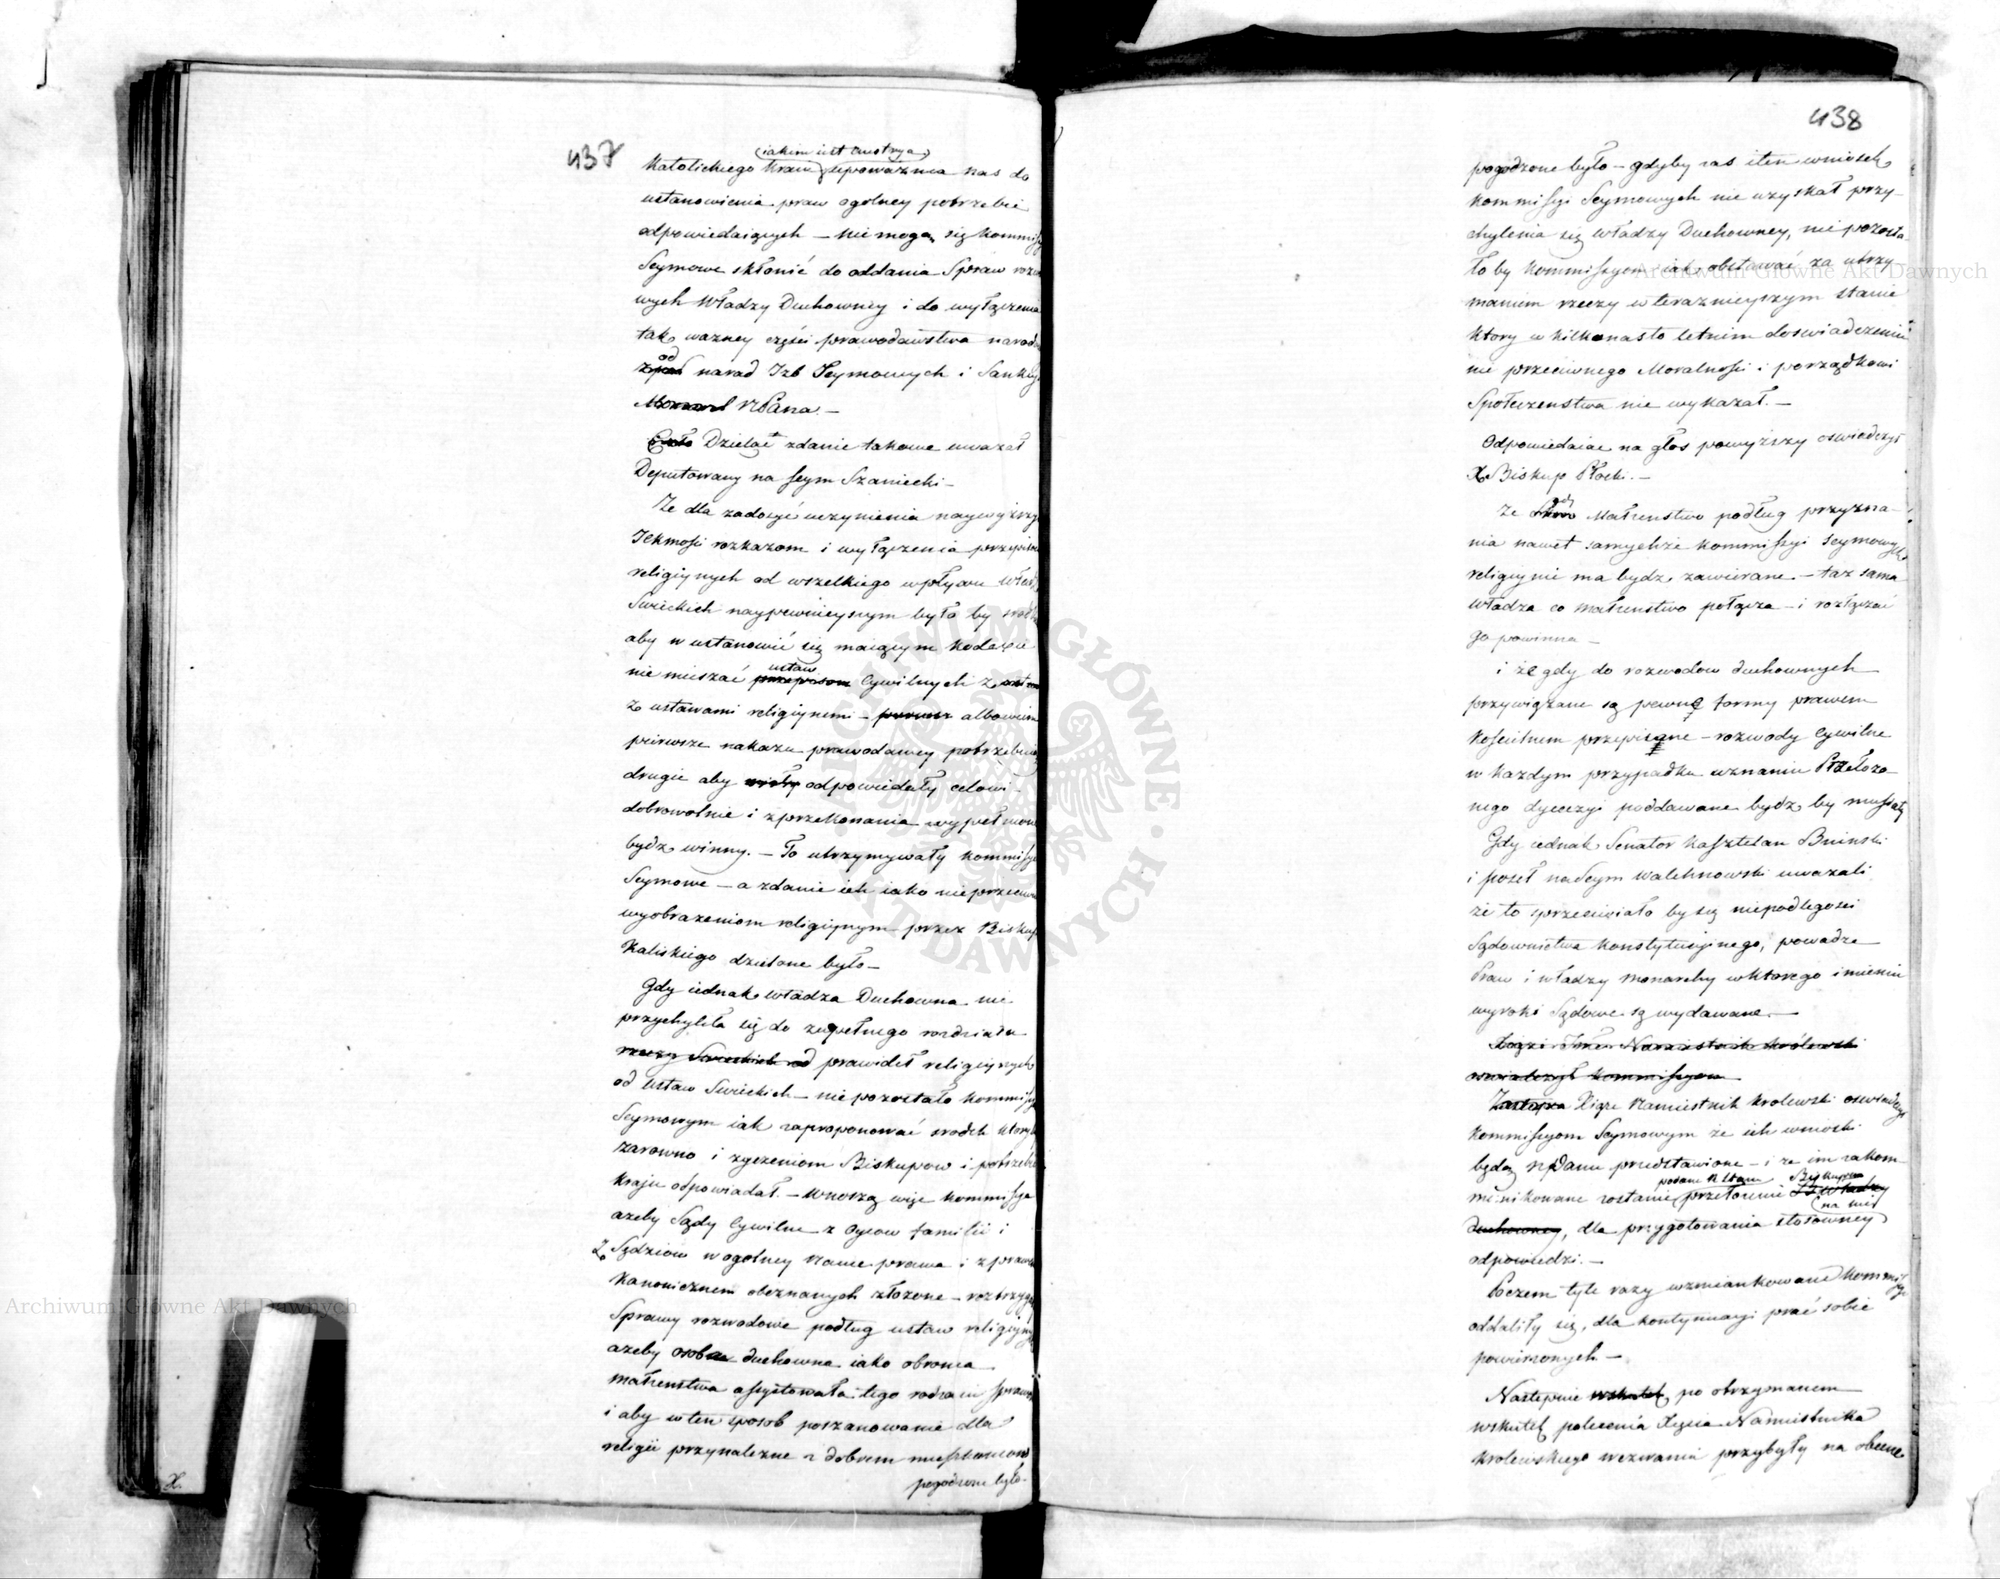 437
iakim iest Austrya
Katolickiego Kraiu upoważnia nas do
ustanowienia praw ogolney potrzebie
odpowiedaiących – nie mogą się Kommissye
Seymowe skłonić do oddania Spraw rozwo
wych Władzy Duchowney i do wyłączenia
tak ważney części prawodawstwa narodo
od
narad Izb Seymowych i Sankcyi
NPana –
Dzielął zdanie takowe uważał
Deputowany na Seym Szaniecki –
Że dla zadosyć uczynienia naywyższym
JKMości rozkazom i wyłączenia przepisów
religiynych od wszelkiego wpływu Władz
Swieckich naypewnieyszym było by srodk
aby w ustanowić się maiącym Kodexie
ustaw
nie mieszać przepisow Cywilnych z
z ustawami religiynemi – albowiem
pierwsze nakazu prawodawcy potrzebuią
drugie aby odpowiedały celowi –
dobrowolnie i z przekonania wypełnione
bydz winny. – To utrzymywały Kommissye
Seymowe – a zdanie ich iako nieprzeciwne
wyobrażeniom religiynym przez Biskupa
Kaliskiego dzielone było –
Gdy iednak władza Duchowna nie
przychyliła się do zupełnego rozdziału
rzeczy Swieckich od prawideł religiynych
od Ustaw Swieckich – nie pozostało Kommissyom
Seymowym iak zaproponować srodek ktoryby
zarowno i życzeniom Biskupow i potrzebie
kraju odpowiadał. – Wnoszą więc Kommissye
ażeby Sądy Cywilne z Oycow familii i
z Sędziow w ogolney nauce prawa i z prawem
Kanonicznem obeznanych złożone – roztrzygały
Sprawy rozwodowe podług ustaw religiynych
ażeby osoba duchowna iako obronca
małżenstwa assystowała tego rodzaiu sprawom
i aby w ten sposob poszanowanie dla
religii przynależne z dobrem mieszkancow
pogodzone było –
X.
438
pogodzone było – gdyby zas i ten wniosek
Kommissyi Seymowych nie uzyskał przy-
chylenia się Władzy Duchowney, nie pozosta
ło by Kommissyom iak obstawać za utrzy
maniem rzeczy w teraznieyszym stanie
ktory w kilkonasto letnim doswiadczeniu
nic przeciwnego Moralnosci i porządkowi
Społeczenstwa nie wykazał. –
Odpowiedaiąc na głos powyższy oswiadczył
X. Biskup Płocki. –
gdy
Że Małżenstwo podług przyzna-
nia nawet samychże Kommissyi Seymowych
religiynie ma bydz zawierane – taż sama
władza co małżenstwo połącza – i rozłączać
go powinna –
i że gdy do rozwodow duchownych
przywiązane są pewne formy prawem
Koscielnem przepisane – rozwody Cywilne
w każdym przypadku uznaniu Przełożo
nego dyecezyi poddawane bydz by musiały
Gdy iednak Senator Kasztelan Bninski
i poseł na Seym Walchnowski uważali
że to sprzeciwiało by się niepodległosci
Sądownictwa Konstytucyinego, powadze
Praw i władzy Monarchy w ktorego imieniu
wyroki Sądowe są wydawane. –
Xiąże Namiestnik Krolewski
oswiadczył Kommissyom
Zastępca Xiąże Namiestnik Krolewski oswiadczył
Kommissyom Seymowym że ich wnioski
będą NPanu przedstawione – i że im zakom
Biskupow
munikowane zostanie przełożenie Władzy
na nie
Duchowney, dla przygotowania stosowney
odpowiedzi. –
Poczem tyle razy wzmiankowane Kommissye
oddaliły się, dla kontynuacyi prac sobie
powierzonych –
Następnie wskutek po otrzymanem
wskutek polecenia Xięcia Namiestnika
Krolewskiego wezwania przybyły na obecne
ARCHIWUM GŁÓWNE AKT DAWNYCH
Archiwum Główne Akt Dawnych
Archiwum Główne Akt Dawnych